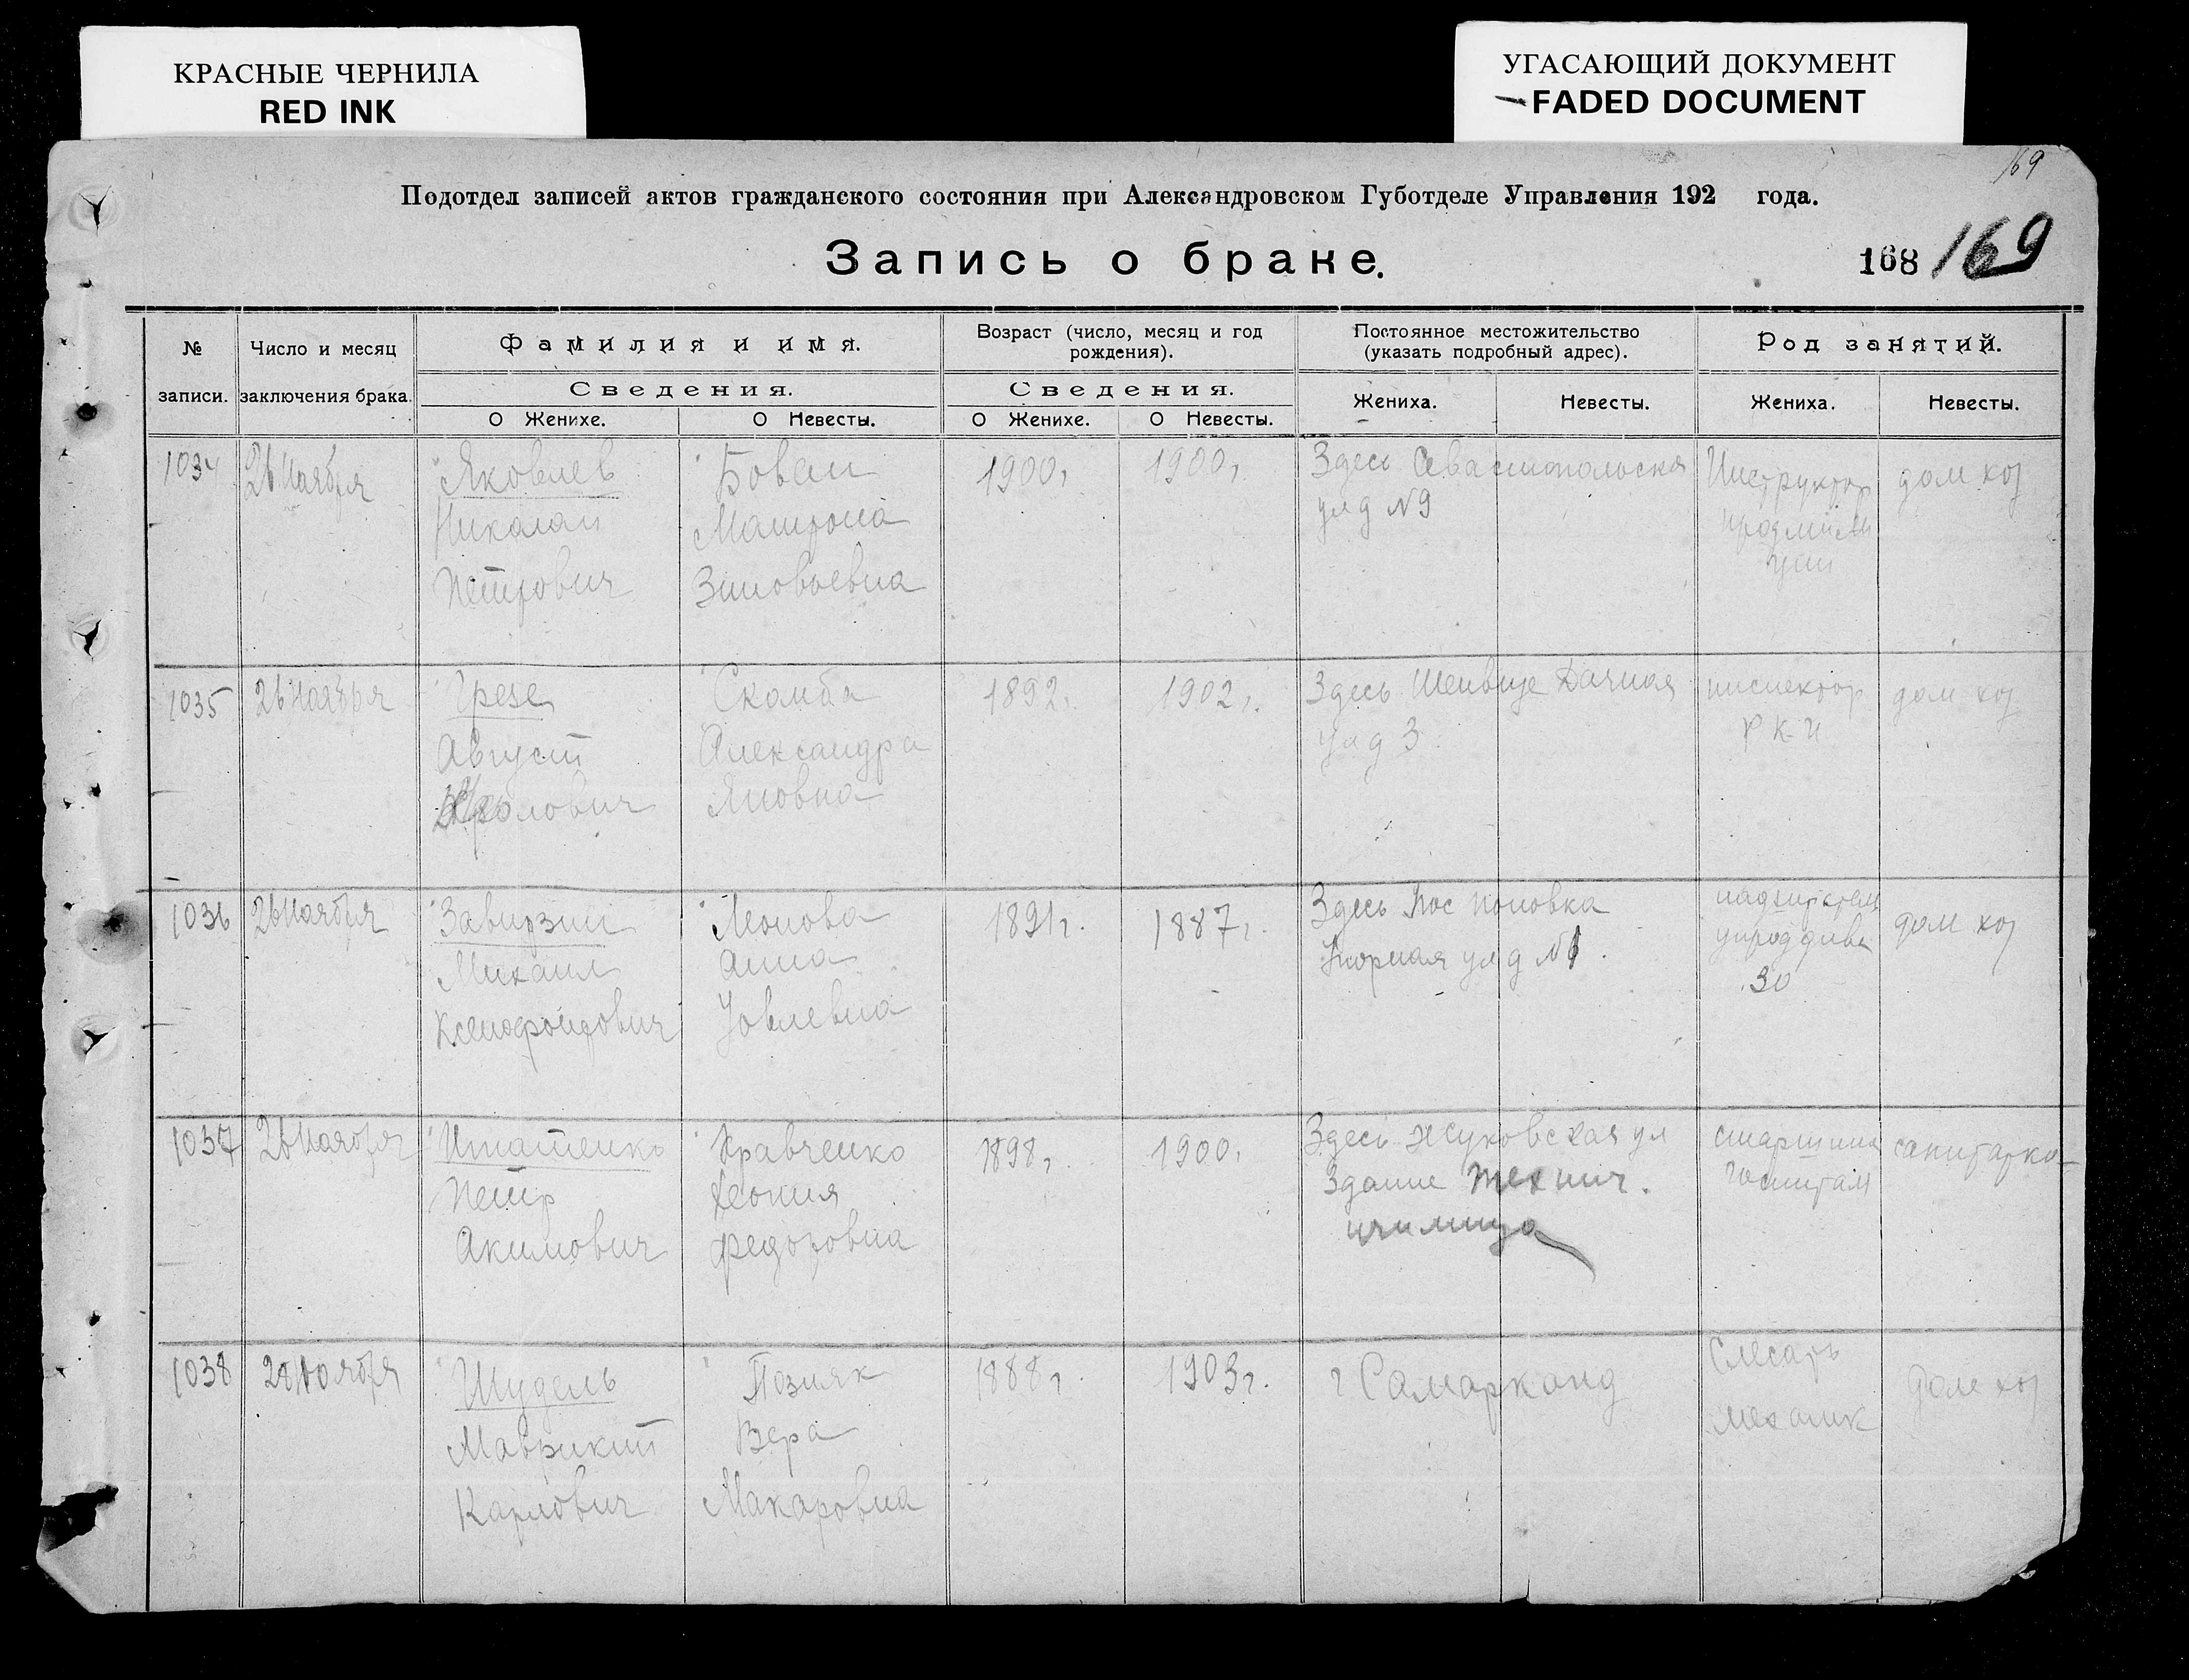 КРАСНЫЕ ЧЕРНИЛА
RED INK
УГАСАЮЩИЙ ДОКУМЕНТ
FADED DOCUMENT
169
Подотдел записей актов гражданского состояния при Александровском Губотделе Управления 192 года.
Запись о браке.
168 169
№ записи.
Число и месяц заключения брака.
Фамилия и имя.
Сведения.
О Женихе.
О Невесты.
Возраст (число, месяц и год рождения).
Сведения.
О Женихе.
О Невесты.
Постоянное местожительство (указать подробный адрес).
Жениха.
Невесты.
Род занятий.
Жениха.
Невесты.
1034
26 Ноября
Яковлев
Николай
Петрович
Бован
Матрона
Зиновьевна
1900г
1900г
Здесь Севастопольская
ул д № 9
Инструктор
дом хоз
1035
26 Ноября
Грезе
Август
Карлович
Скамба
Александра
Яновна
1892г.
1902г.
Здесь Дачная
ул д 3
инспектор
Р К-И
дом хоз
1036
26 Ноября
Завирзин
Михаил
Леонова
Анна
1891г.
1887г.
Здесь Пос Поповка
ул д №1
30
дом хоз
1037
26 Ноября
Игнатенко
Петр
Акимович
Кравченко
Феония
Федоровна
1898г
1900г
Здесь Жуковская ул
Здание Технич.
училища
старшина
госпиталя
санитарка
1038
28 Ноября
Шудель
Маврикий
Карлович
Позняк
Вера
Макаровна
1888г.
1903г.
г Самарканд
Слесарь
механик
дом хоз